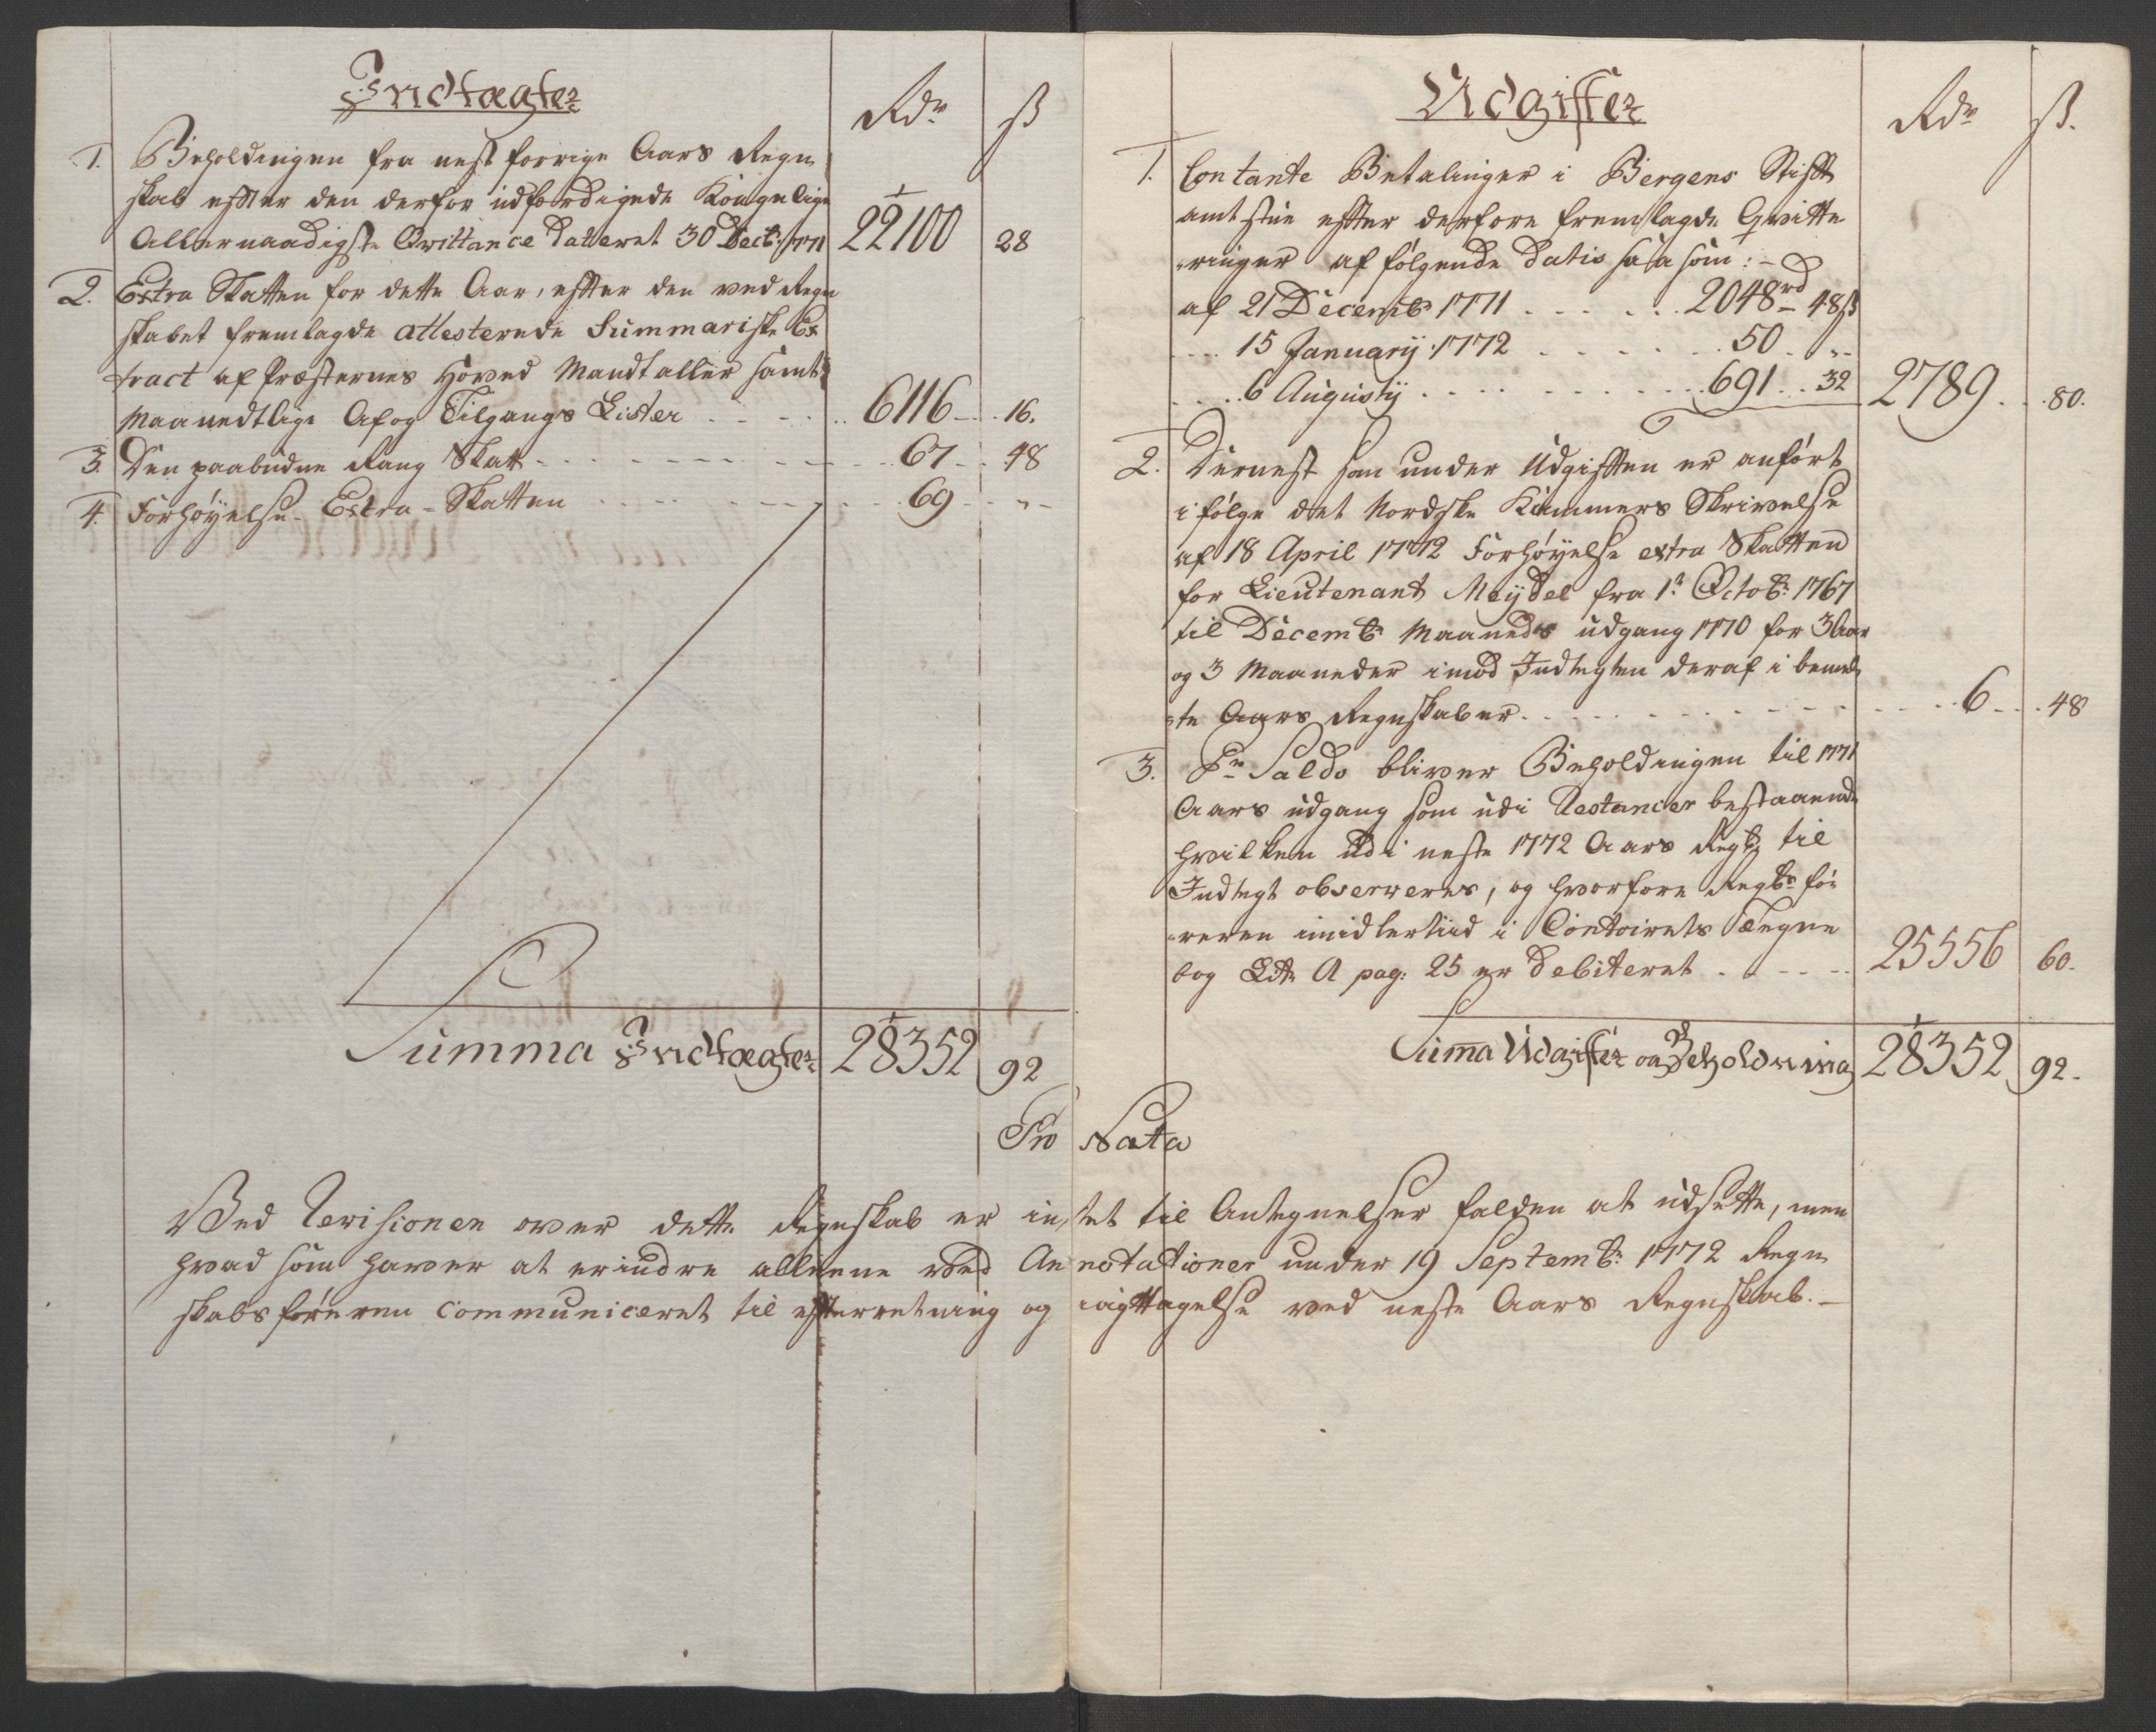 Indtægter
Rdr ß
1. Beholdingen fra nest forrige Aars Regn
skab efter den derfor udfærdigede Kongelige
Allernaadigste Qvittance dateret 30 Decbr 1771 22100 28
2. Extra Skatten for dette Aar, efter den ved Regn
skabet fremlagde attesterede Summariske Ex
tract af Præsternes Hoved Mandtaller samt
Maanedtlige Af og Tilgangs Lister 6116 16.
3. Den paabudne Rang Skatt 67 48
4. Forhøyelse Extra-Skatten 69 "
Summa Indtægter 28352 92
Udgifter
Rdr ß.
1. Contante Betalinger i Bergens Stifft
amtstue efter derfore fremlagde Qvitte
ringer af følgende Datis saasom:
af 21 Decembr 1771 2048rd 48ß
15 January 1772 50 "
6 Augusty 691 32 2789 80.
2. Dernest som under Udgifften er anført
i følge det Nordske Kammers Skrivelse
af 18 April 1772 Forhøyelse extra Skatten
for Lieutenant Meydel fra 1r Octobr 1767
til Decembr Maaneds udgang 1770 for 3 Aar
og 3 Maaneder imod Indtegten deraf i bemel
te Aars Regnskaber 6 48
3. Pr Saldo bliver Beholdingen til 1771
Aars udgang som udi Restancer bestaaende
hvilken udi neste 1772 Aars Regsk til
Indtegt observeres, og hvorfore Regsk fø
reren imidlertiid i Contoirets Tegne
bog Litr A pag: 25 er debiteret 25556 60.
Summa Udgifter og Beholdning 28352 92.
Pro Nota
Ved Revisionen over dette Regnskab er intet til Antegnelser falden at udsette, men
hvad som haver at erindre alleene ved Annotationer under 19 Septembr: 1772 Regn
skabsføreren communiceret til efterretning og iagttagelse ved neste Aars Regnskab.